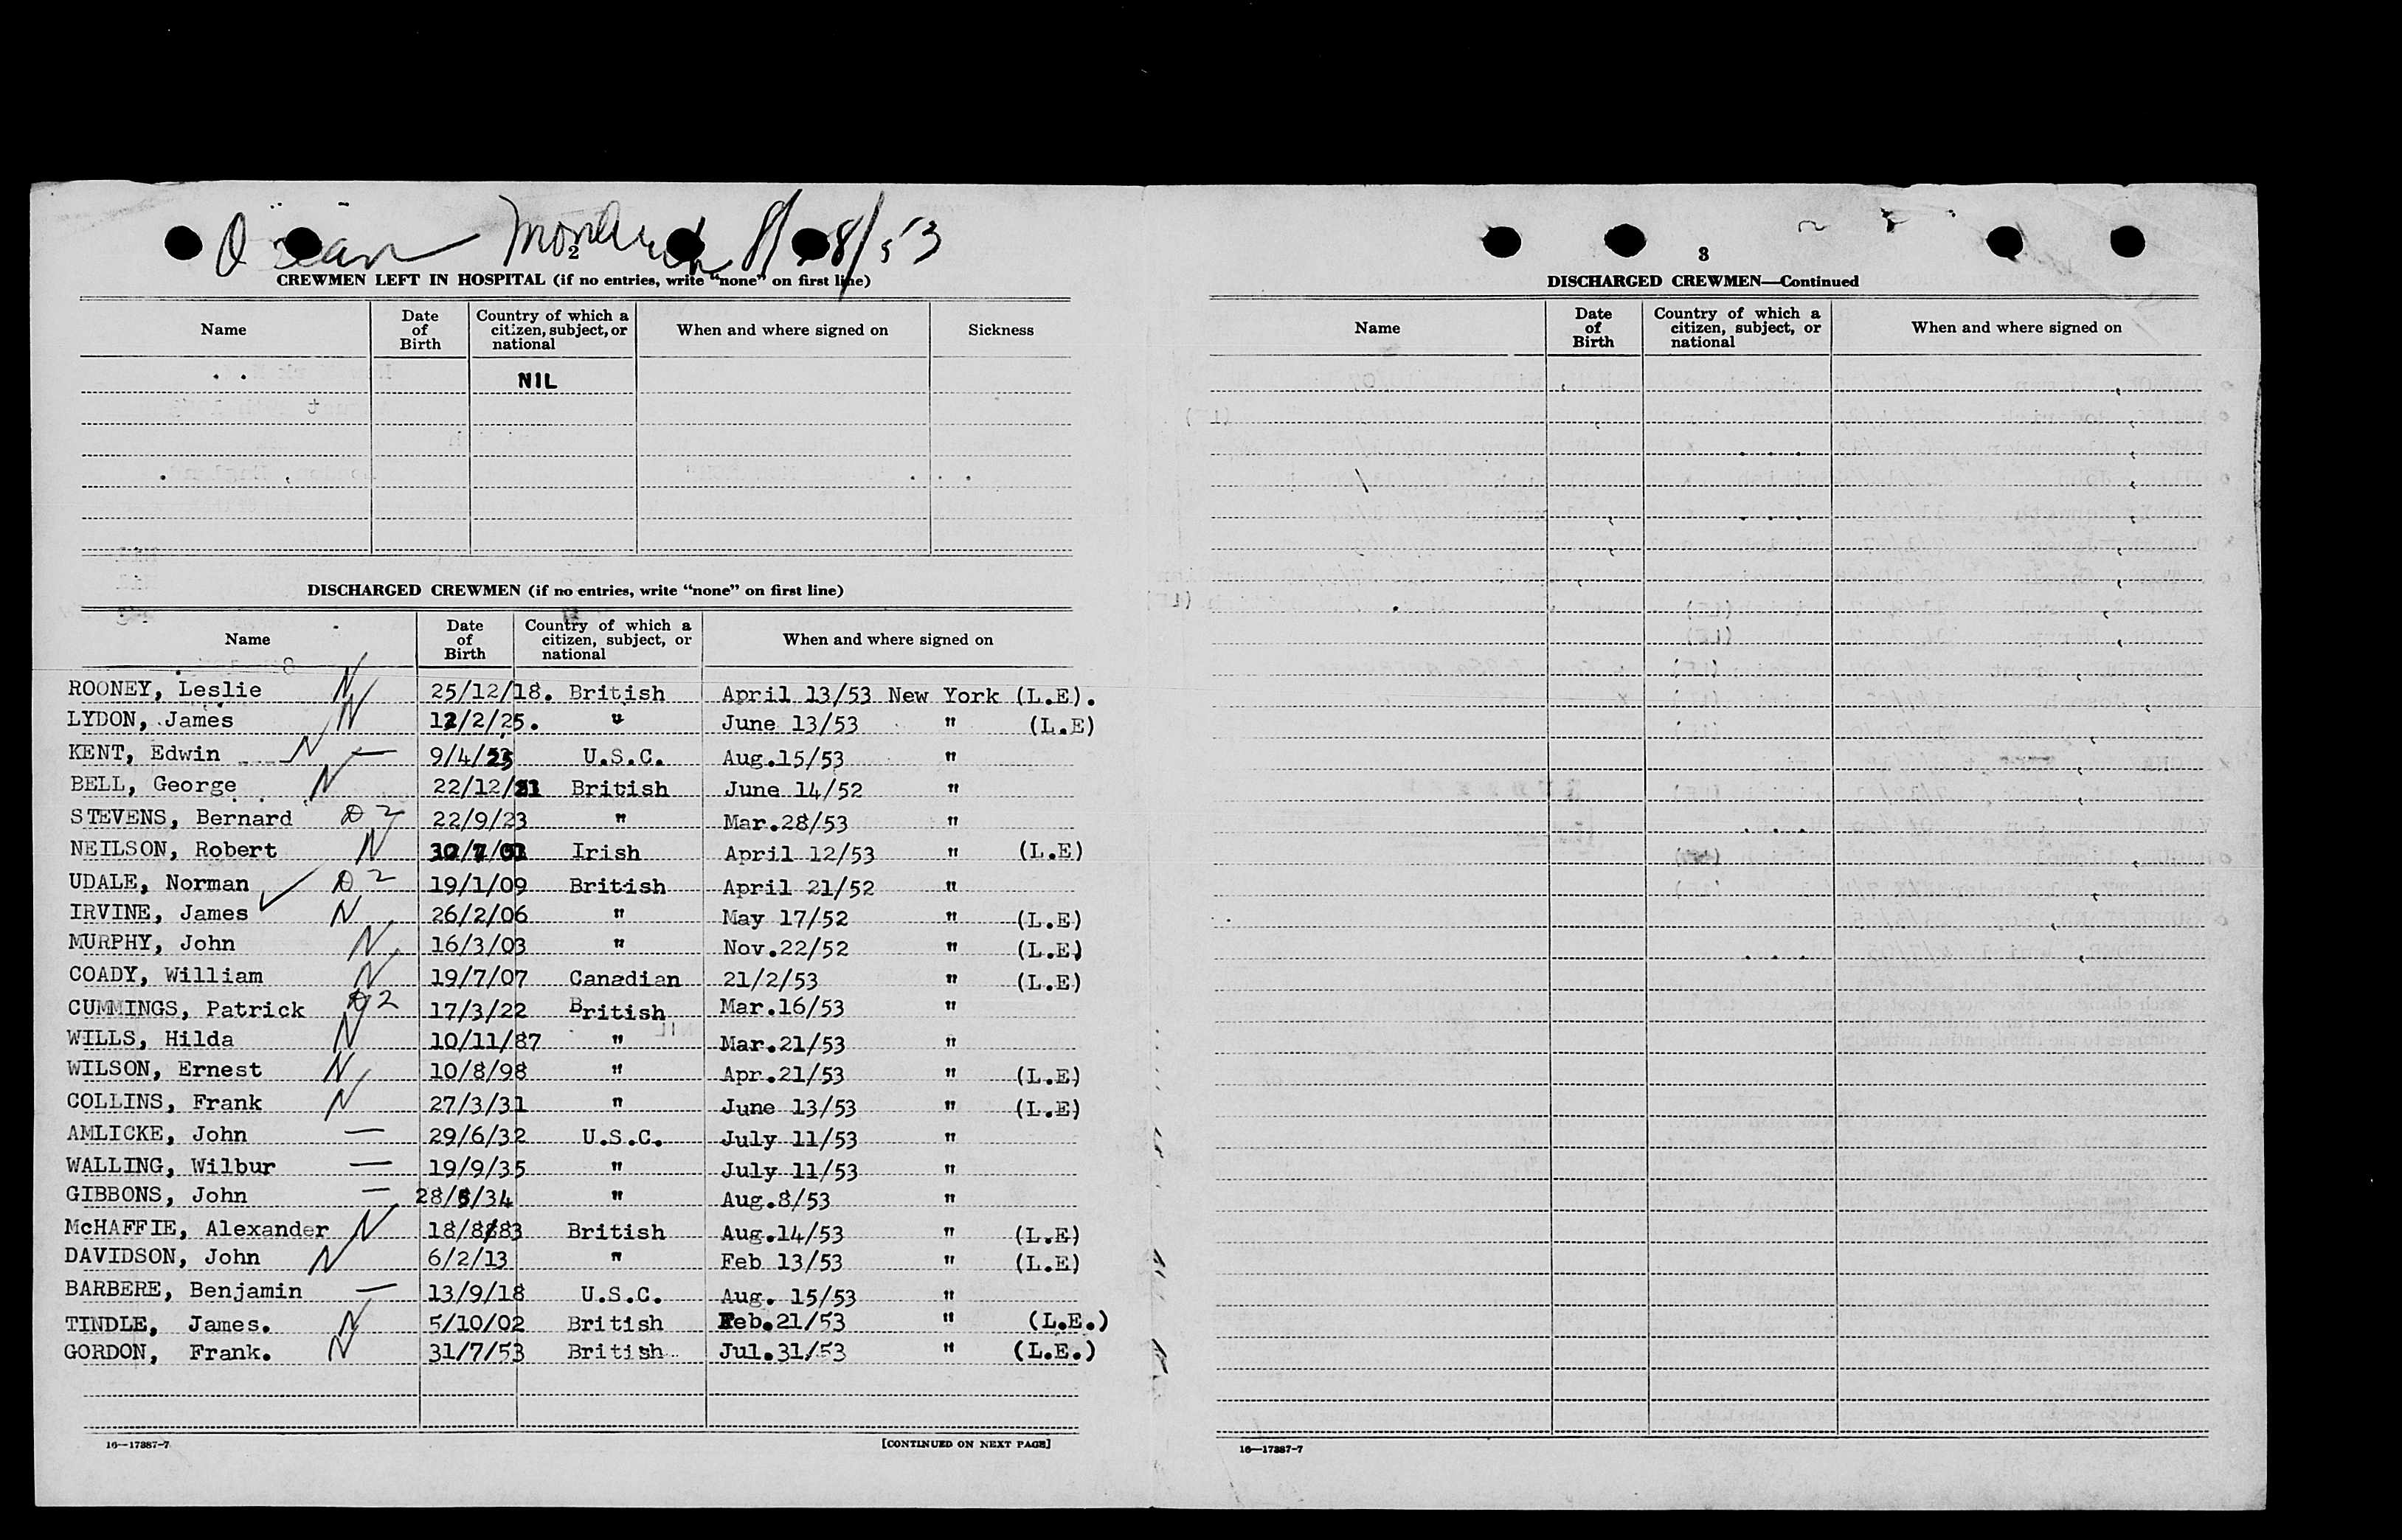 Monarch 8/ 8/53
2
CREWMEN LEFT IN HOSPITAL (if no entries, write "none" on first line)
Name Date of Birth Country of which a citizen, subject, or national When and where signed on Sickness
NIL
DISCHARGED CREWMEN (if no entries, write "none" on first line)
Name Date of Birth Country of which a citizen, subject, or national When and where signed on
ROONEY, Leslie N 25/12/18. British April 13/53 New York (L.E).
LYDON, James N /2/25. " June 13/53 " (L.E)
KENT, Edwin N — 9/4/ U.S.C. Aug.15/53 "
BELL, George N 22/12/ British June 14/52 "
STEVENS, Bernard D 2 22/9/23 " Mar.28/53 "
NEILSON, Robert N Irish April 12/53 " (L.E)
UDALE, Norman ✓ D 2 19/1/09 British April 21/52 "
IRVINE, James N 26/2/06 " May 17/52 " (L.E)
MURPHY, John N 16/3/03 " Nov.22/52 " (L.E)
COADY, William N 19/7/07 Canadian 21/2/53 " (L.E)
CUMMINGS, Patrick D 2 17/3/22 British Mar.16/53 "
WILLS, Hilda N 10/11/87 " Mar.21/53 "
WILSON, Ernest N 10/8/98 " Apr.21/53 " (L.E)
COLLINS, Frank N 27/3/31 " June 13/53 " (L.E)
AMLICKE, John — 29/6/32 U.S.C. July 11/53 "
WALLING, Wilbur — 19/9/35 " July 11/53 "
GIBBONS, John — 28/ /34 " Aug.8/53 "
McHAFFIE, Alexander N 18/8/83 British Aug.14/53 " (L.E)
DAVIDSON, John N 6/2/13 " Feb 13/53 " (L.E)
BARBERE, Benjamin — 13/9/18 U.S.C. Aug. 15/53 "
TINDLE, James. N 5/10/02 British Feb.21/53 " (L.E.)
GORDON, Frank. N 31/7/53 British Jul.31/53 " (L.E.)
16—17387-7 [CONTINUED ON NEXT PAGE]
3
DISCHARGED CREWMEN—Continued
Name Date of Birth Country of which a citizen, subject, or national When and where signed on
16—17387-7